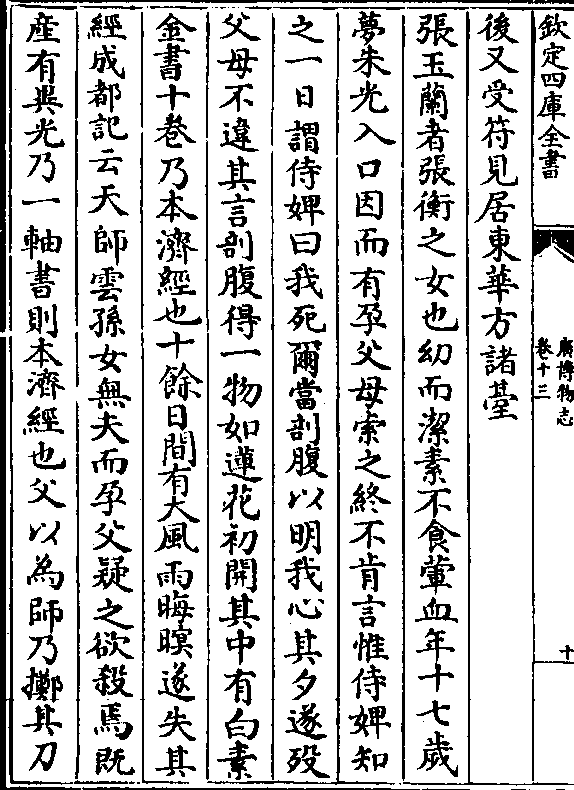 欽定四庫全書
廣博物志
卷十三
十
後又受符見居東華方諸臺
張玉蘭者張衡之女也幼而潔素不食葷血年十七歲
夢朱光入口因而有孕父母索之終不肯言惟侍婢知
之一日謂侍婢曰我死爾當剖腹以明我心其夕遂歿
父母不違其言剖腹得一物如蓮花初開其中有白素
金書十卷乃本濟經也十餘日間有大風雨晦暝遂失其
經成都記云天師雲孫女無夫而孕父疑之欲殺焉既
産有異光乃一軸書則本濟經也父以為師乃擲其刀